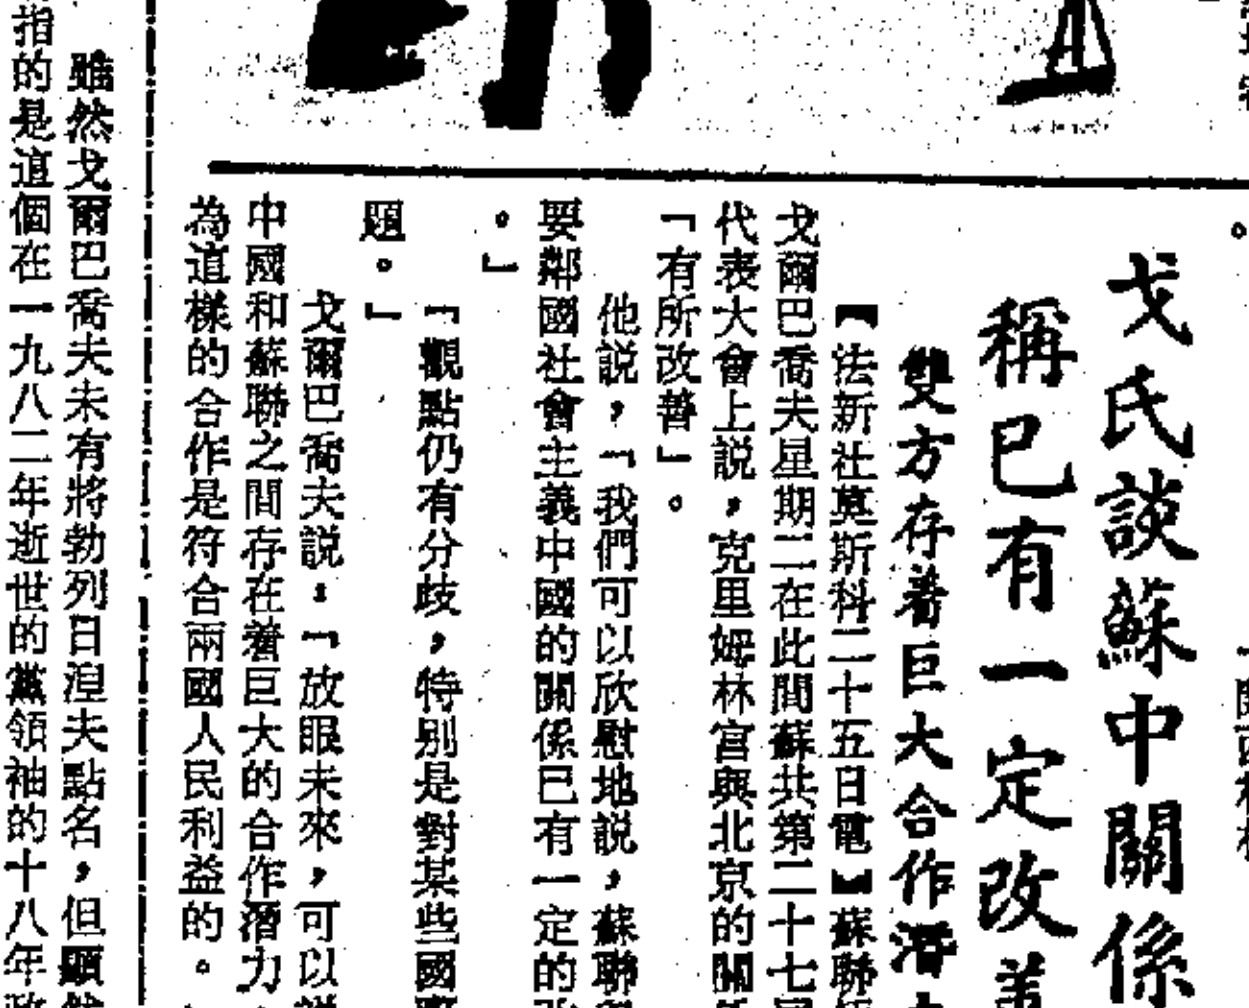 戈氏談蘇中關係
稱已有一定改善
雙方存着巨大合作潛力
【法新社莫斯科二十五日電】蘇聯
戈爾巴喬夫星期二在此間蘇共第二十七屆
代表大會上説，克里姆林宮與北京的關係
「有所改善」。
他説，「我們可以欣慰地説，蘇聯與
要鄰國社會主義中國的關係已有一定的改
。」
「觀點仍有分歧，特別是對某些國際
題。」
戈爾巴喬夫説：「放眼未來，可以説
中國和蘇聯之間存在着巨大的合作潛力
為這樣的合作是符合兩國人民利益的。
雖然戈爾巴喬夫未有將勃列日湼夫點名，但顯然
指的是這個在一九八二年逝世的黨領袖的十八年政